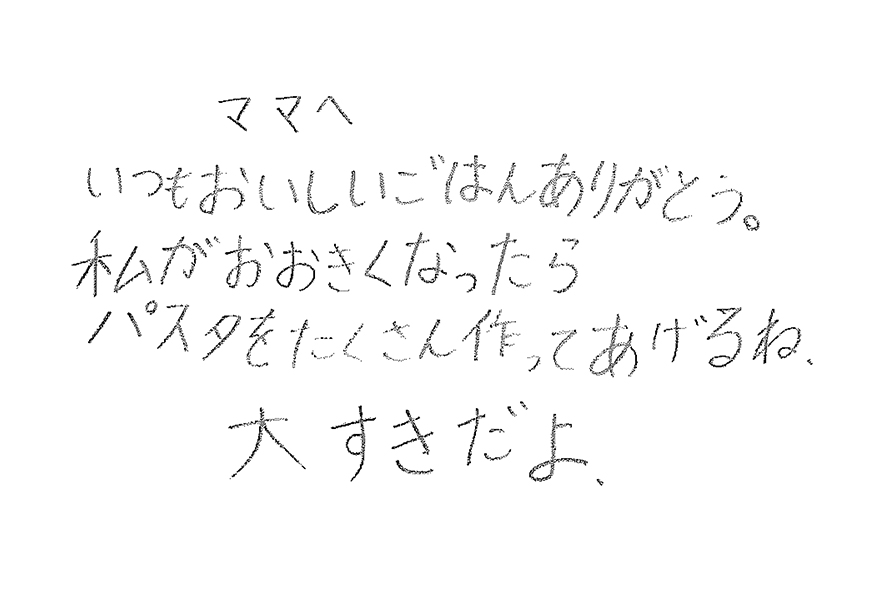 ママへ
いつもおいしいごはんありがとう。
私がおおきくなったら
パスタをたくさん作ってあげるね、
大すきだよ、